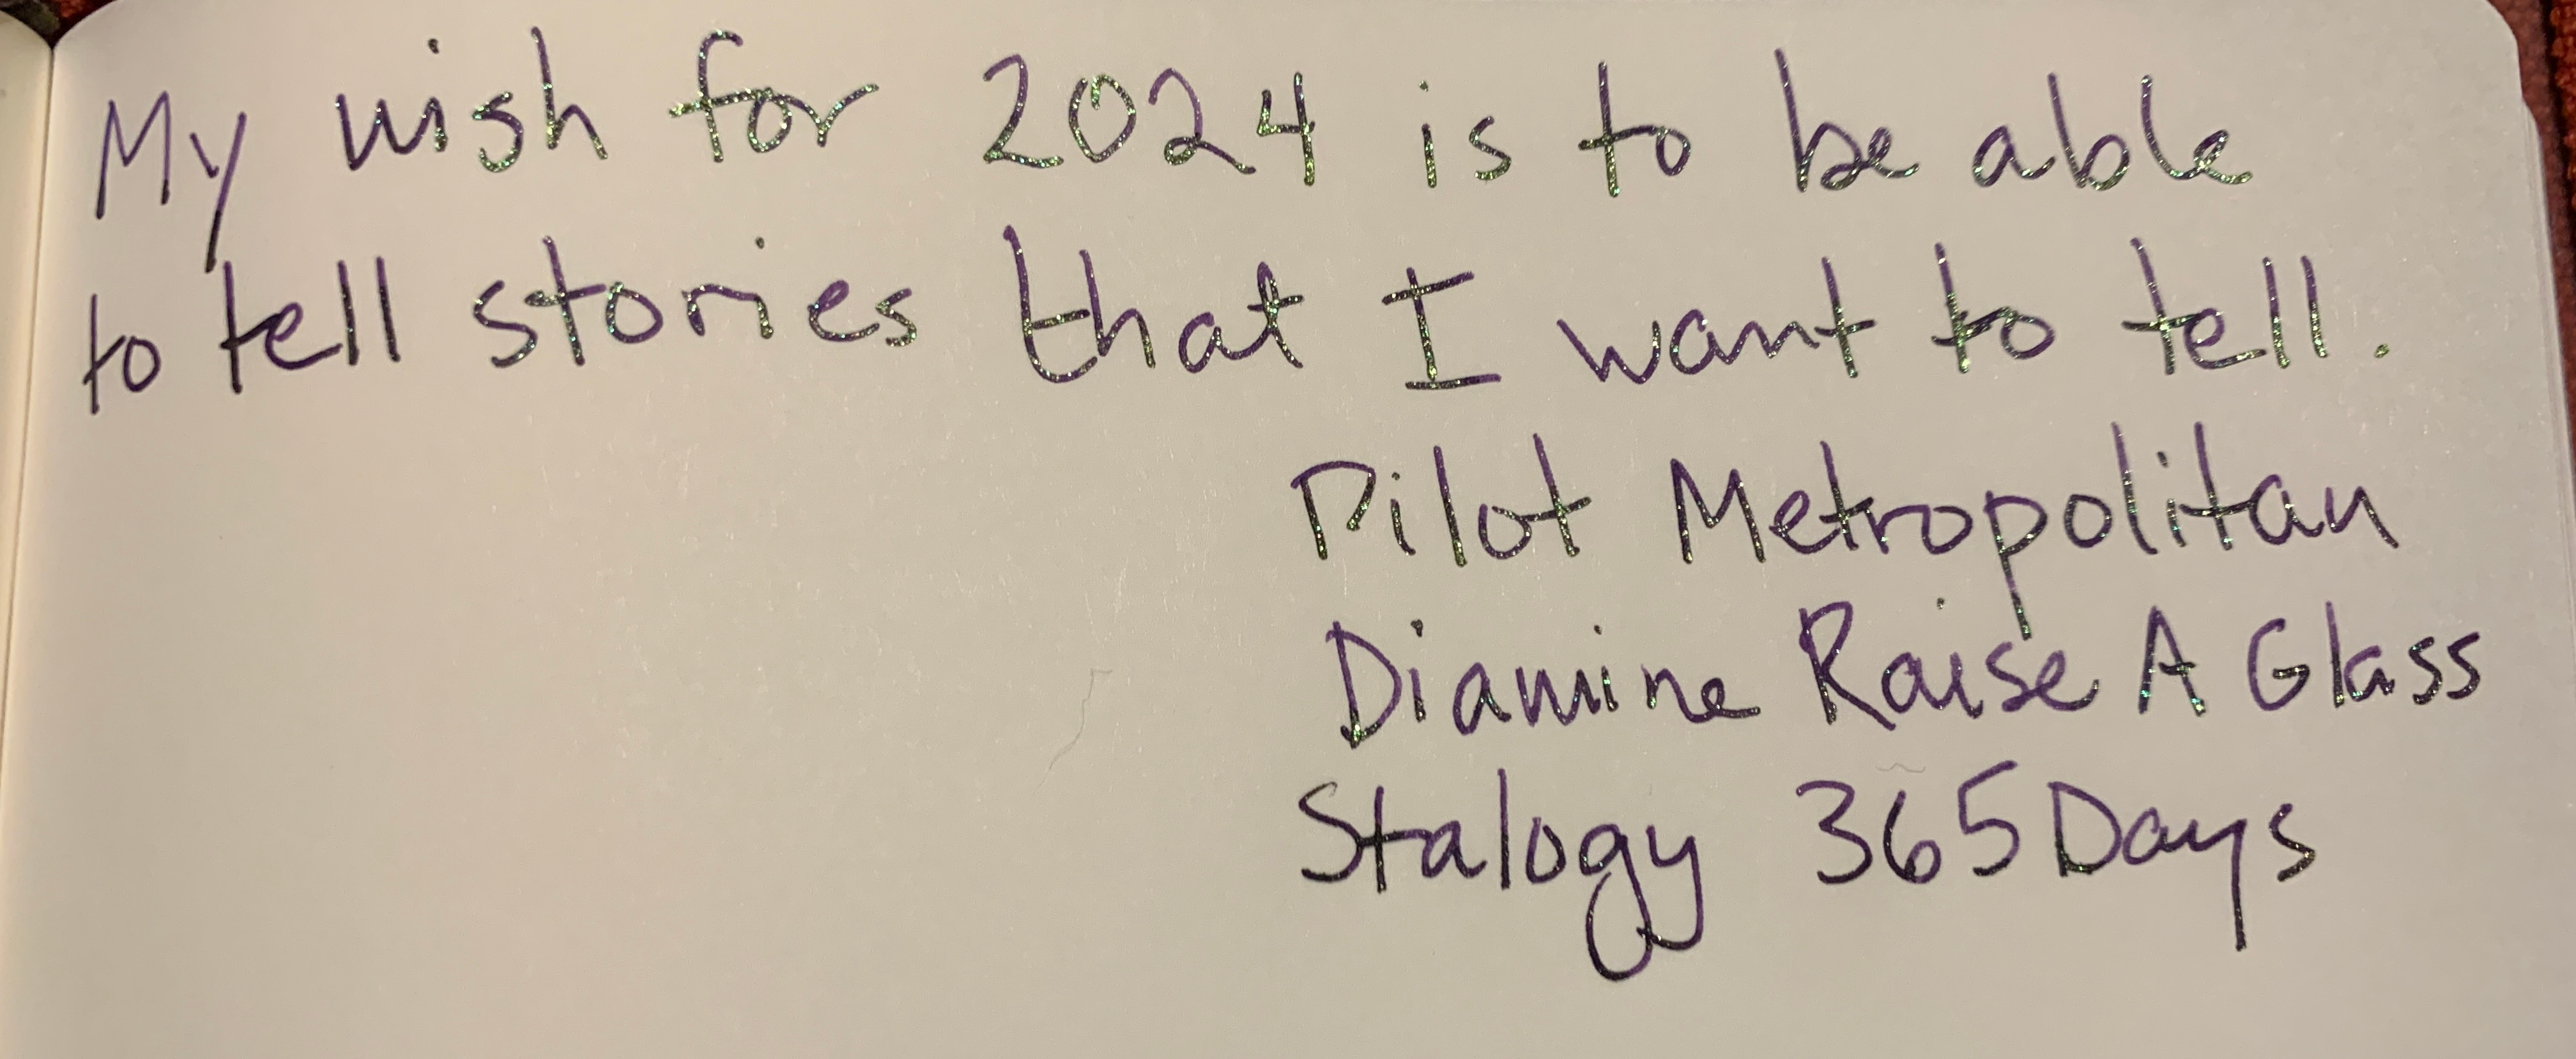 My wish for 2024 is to be able
to tell stories that I want to tell.
Pilot Metropolitan
Diamine Raise A Glass
Stalogy 365 Days